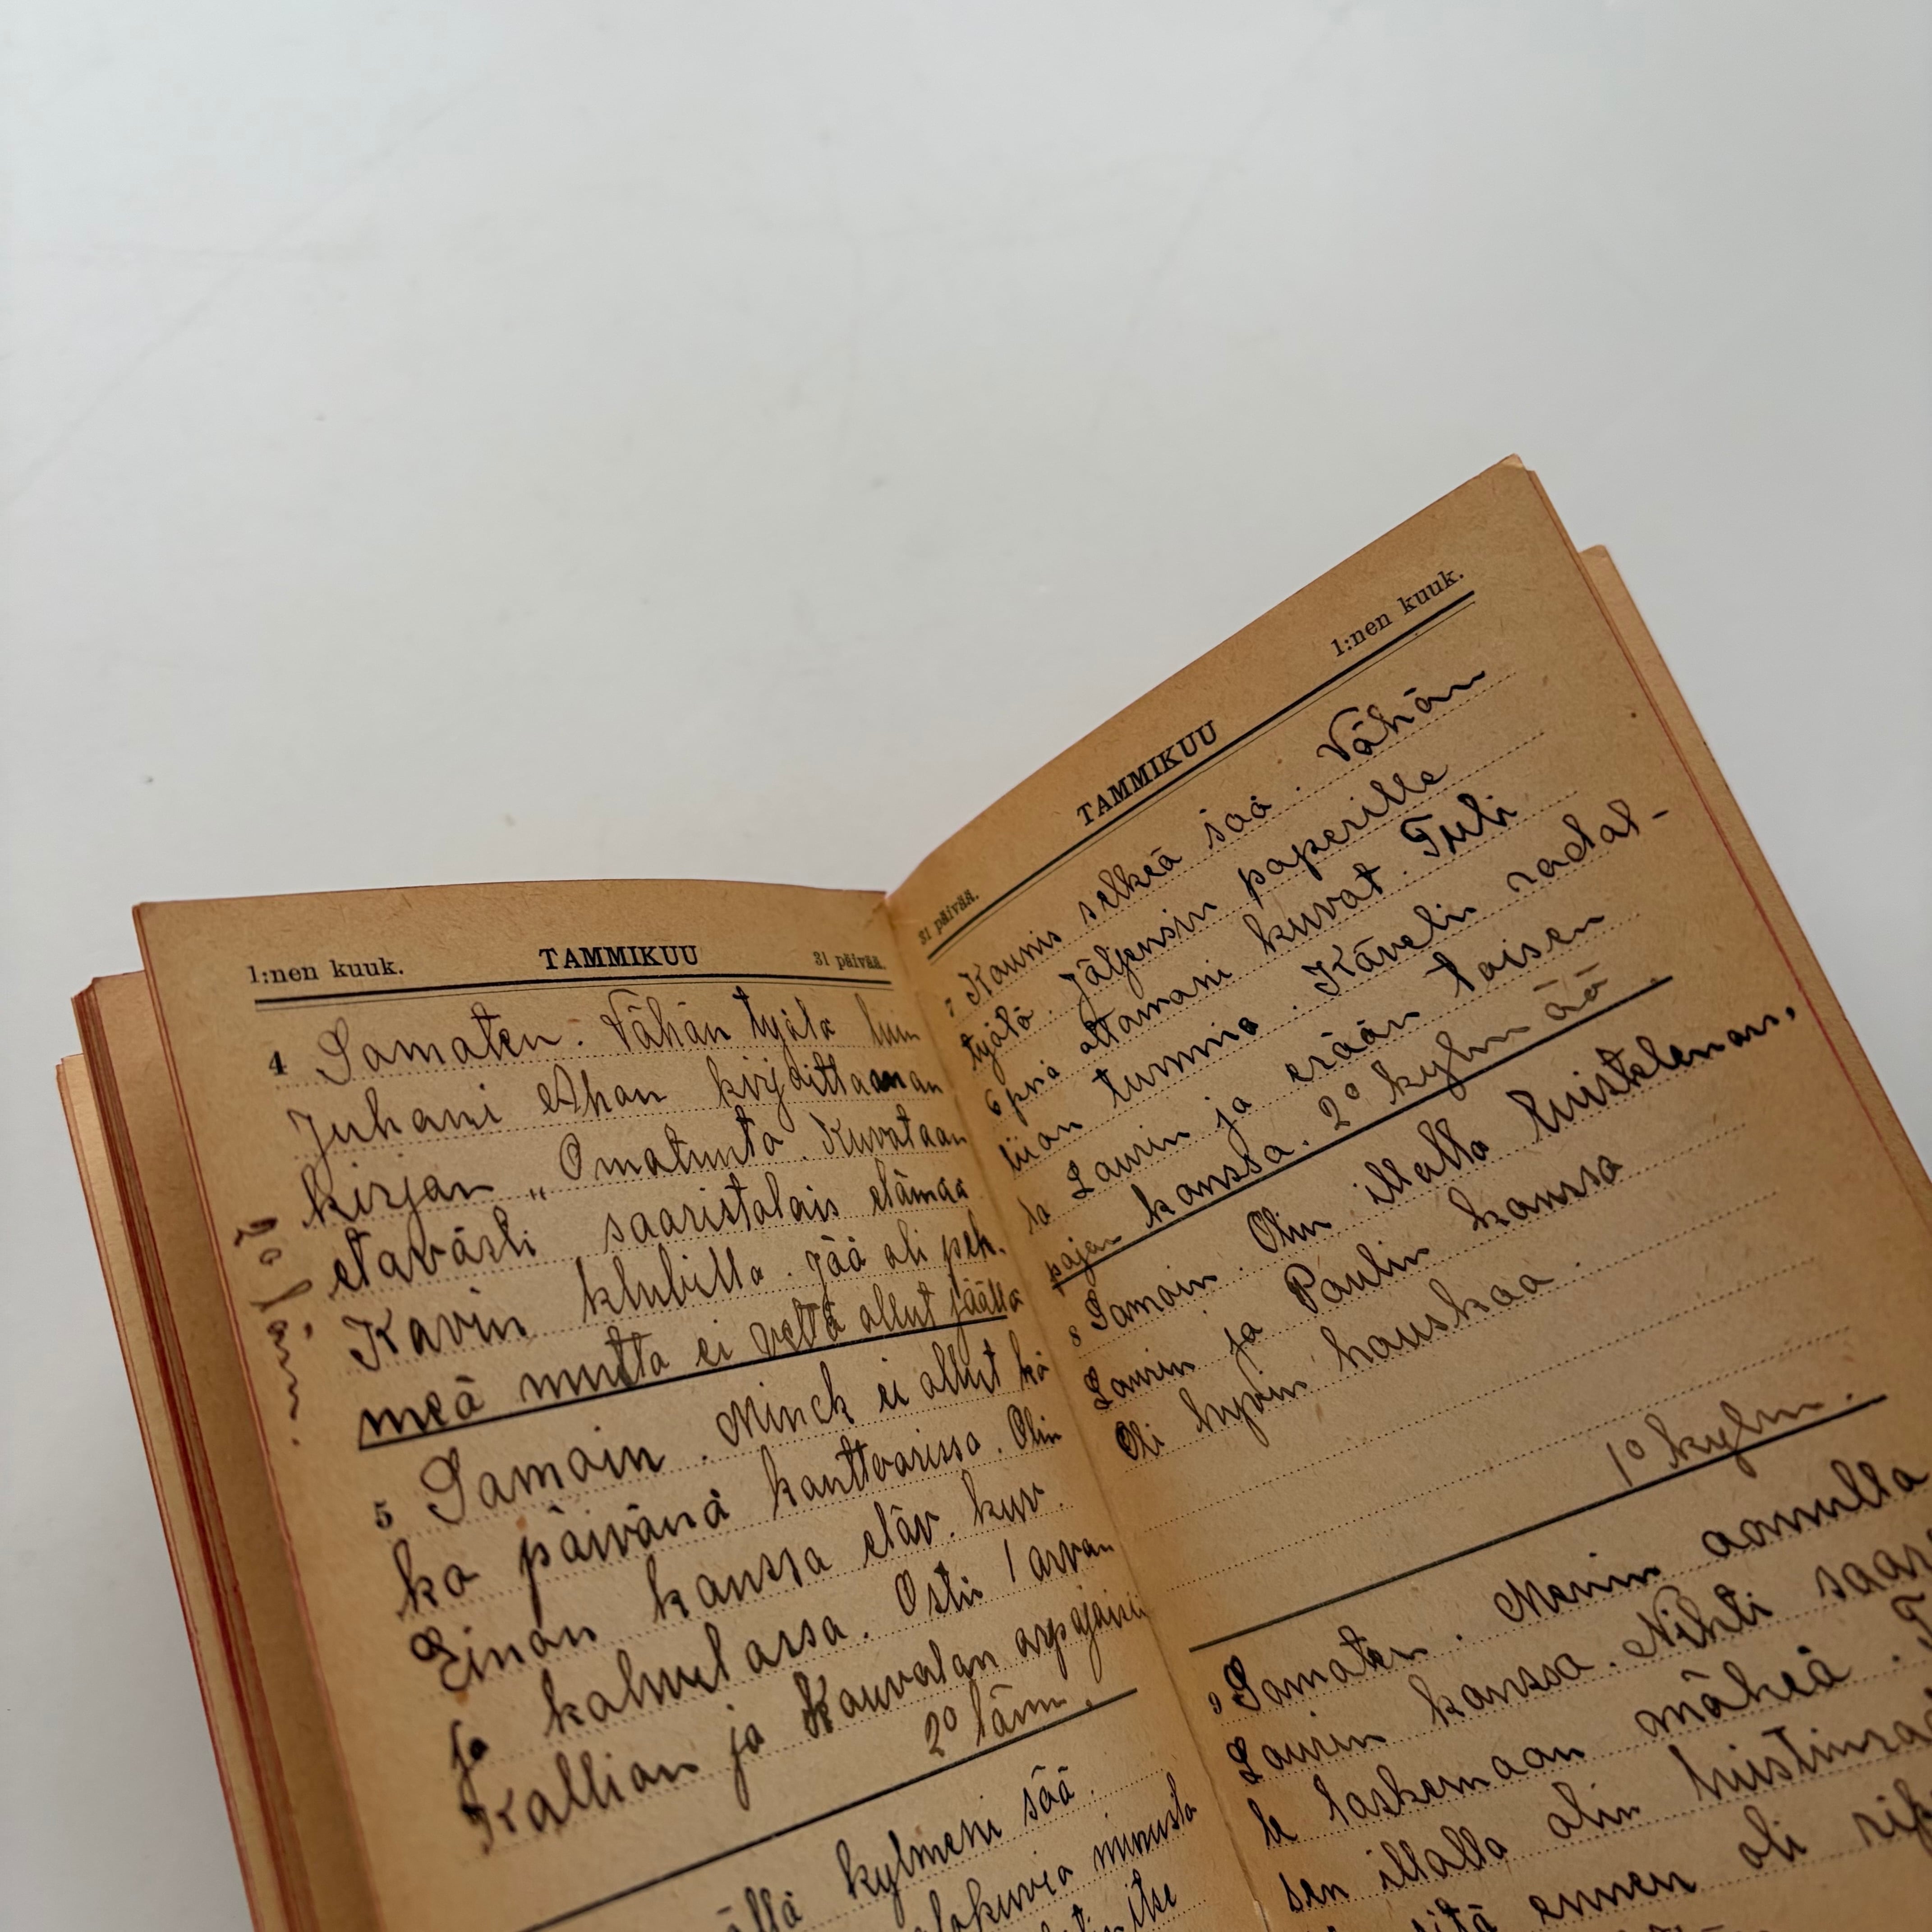 1:nen kuuk. TAMMIKUU 31 päivää.
4 Samaten. Vähän työtä luin
Juhani Ahon kirjoittaman
kirjan „Omatunto. Kuvataan
etäväsli saaristolais elämää
Kävin klubilla. Jää oli peh.
meä mutta ei vettä ollut jäällä
2° läm.
5 Samoin. Minck ei ollut ko
ko päivänä konttoorissa. Olin
Einon kanssa eläv. kuv.
ja kahvilassa. Ostin 1 arvan
Kallion ja Kouvolan arpajaisi
2° läm.
kylmeni sää.
minusta
itse
31 päivää. TAMMIKUU 1:nen kuuk.
7 Kaunis selkeä sää. Vähän
työtä. Jäljensin paperille
6 pnä ottamani kuvat. Tuli
liian tummia. Kävelin radal-
la Laurin ja erään toisen
pojan kanssa. 2° kylmää.
8 Samoin. Olin illalla luistelemas,
Laurin ja Paulin kanssa
Oli hyvin hauskaa.
1° kylm.
9 Samaten. Menin aamulla
Laurin kanssa. Nihti saar
le laskemaan mäkeä. T
sen illalla olin luistinra
sitä ennen oli rik